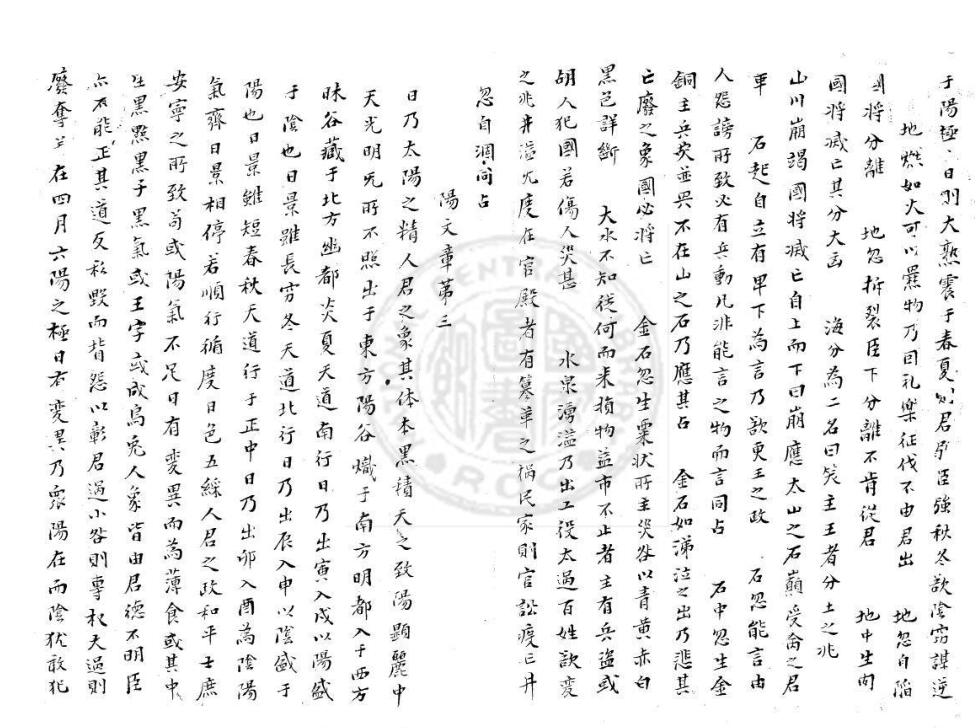 于陽極日則大熱震于春夏則君弱臣強秋冬欲陰窮謀逆
地燃如火可以爨物乃因礼楽征伐不由君出 地忽自陷
國将分離 地忽拆裂臣下分離不肯從君 地中生
國将滅亡其分大凶 海分為二名曰 主王者分土之兆
山川崩竭國将滅亡自上而下曰崩應太山之石巔受禽之君
平 石起自立有卑下為言乃欲更王之政 石忽能言由
人怨謗所致必有兵動凡非能言之物而言同占 石中忽生金
銅主兵矣並畏不在山之石乃應其占 金石如涕泣之出乃悲其
亡廢之象國必将亡 金石忽生粟状所主災咎以青黄赤白
黑色詳斷 大水不知従何而来損物益市不止者主有兵盗或
胡人犯國若傷人災甚 水泉湧溢乃出工役太過百姓欲变
之兆井溢尤度在官殿者有篡革之禍民家則官訟疫亡井
忽自涸同占
陽文章第三
日乃太陽之精人君之象其体本黑積天之致陽顯麗中
天光明旡所不照出于東方陽谷熾于南方明都入于西方
昧谷藏于北方幽都炎夏天道南行日乃出寅入戌以陽盛
于陰也日景雖長窮冬天道北行日乃出辰入申以陰盛于
陽也日景雖短春秋天道行于正中日乃出卯入酉為陰陽
氣齊日景相停若順行循度日色五綵人君之政和平士庶
安寧之所致苟或陽氣不足日有变異而為薄食或其中
生黑點黑子黑氣或王字或成烏兔人象皆由君德不明臣
亦不能正其道反私毀而皆怨以彰君過小咎則專权大過則
廢奪 在四月六陽之極日有变異乃衆陽在而陰犹敢犯